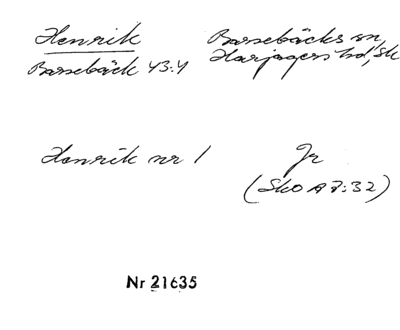 Henrik
Barsebäcks sn,
Harjagers hd, Sk
Barsebäck 43:4
Henrik nr 1
Jr
(SkO A 7:32)
Nr 21635